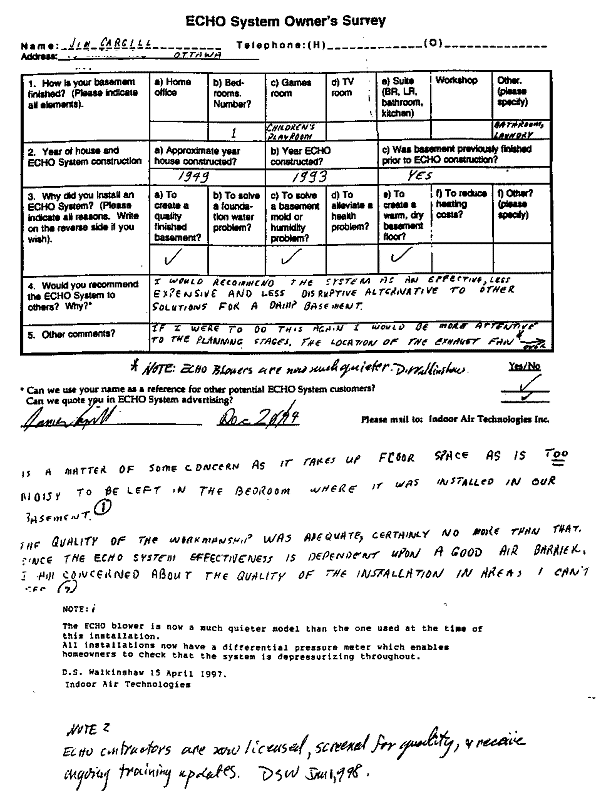 ECHO System Owner's Survey
Name: JIM CARGILL Telephone: (H) (O)
Address: OTTAWA
1. How is your basement finished? (Please indicate all elements).
a) Home office
b) Bedrooms. Number?
c) Games room
d) TV room
e) Suite (BR, LR, bathroom, kitchen)
Workshop
Other. (please specify)
1
CHILDREN'S PLAYROOM
BATHROOM, LAUNDRY
2. Year of house and ECHO System construction
a) Approximate year house constructed?
b) Year ECHO constructed?
c) Was basement previously finished prior to ECHO construction?
1949
1993
YES
3. Why did you install an ECHO System? (Please indicate all reasons. Write on the reverse side if you wish).
a) To create a quality finished basement?
b) To solve a foundation water problem?
c) To solve a basement mold or humidity problem?
d) To alleviate a health problem?
e) To create a warm, dry basement floor?
f) To reduce heating costs?
f) Other? (please specify)
✓ ✓ ✓
4. Would you recommend the ECHO System to others? Why?*
I WOULD RECOMMEND THE SYSTEM AS AN EFFECTIVE, LESS
EXPENSIVE AND LESS DISRUPTIVE ALTERNATIVE TO OTHER
SOLUTIONS FOR A DAMP BASEMENT.
5. Other comments?
IF I WERE TO DO THIS AGAIN I WOULD BE MORE ATTENTIVE
TO THE PLANNING STAGES. THE LOCATION OF THE EXHAUST FAN* → OVER
* NOTE: ECHO Blowers are now much quieter. D.S. Walkinshaw.
Yes/No
* Can we use your name as a reference for other potential ECHO System customers? ✓
Can we quote you in ECHO System advertising? ✓
Dec 20/94
Please mail to: Indoor Air Technologies Inc.
IS A MATTER OF SOME CONCERN AS IT TAKES UP FLOOR SPACE AS IS TOO
NOISY TO BE LEFT IN THE BEDROOM WHERE IT WAS INSTALLED IN OUR
BASEMENT. (1)
THE QUALITY OF THE WORKMANSHIP WAS ADEQUATE, CERTAINLY NO MORE THAN THAT.
SINCE THE ECHO SYSTEM EFFECTIVENESS IS DEPENDENT UPON A GOOD AIR BARRIER,
I AM CONCERNED ABOUT THE QUALITY OF THE INSTALLATION IN AREAS I CAN'T
SEE (2)
NOTE: 1
The ECHO blower is now a much quieter model than the one used at the time of
this installation.
All installations now have a differential pressure meter which enables
homeowners to check that the system is depressurizing throughout.
D.S. Walkinshaw 15 April 1997.
Indoor Air Technologies
NOTE 2
ECHO contractors are now licensed, screened for quality, & receive
ongoing training updates. DSW Jan 1, 998.